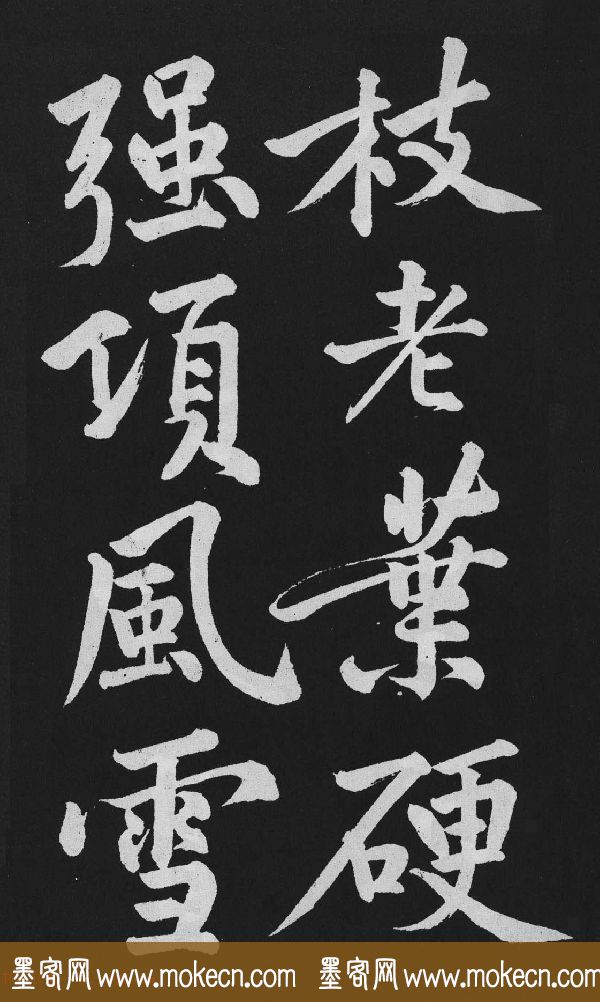 枝老葉硬
强項風雪
墨客网 www.mokecn.com 墨客网 www.mokecn.com